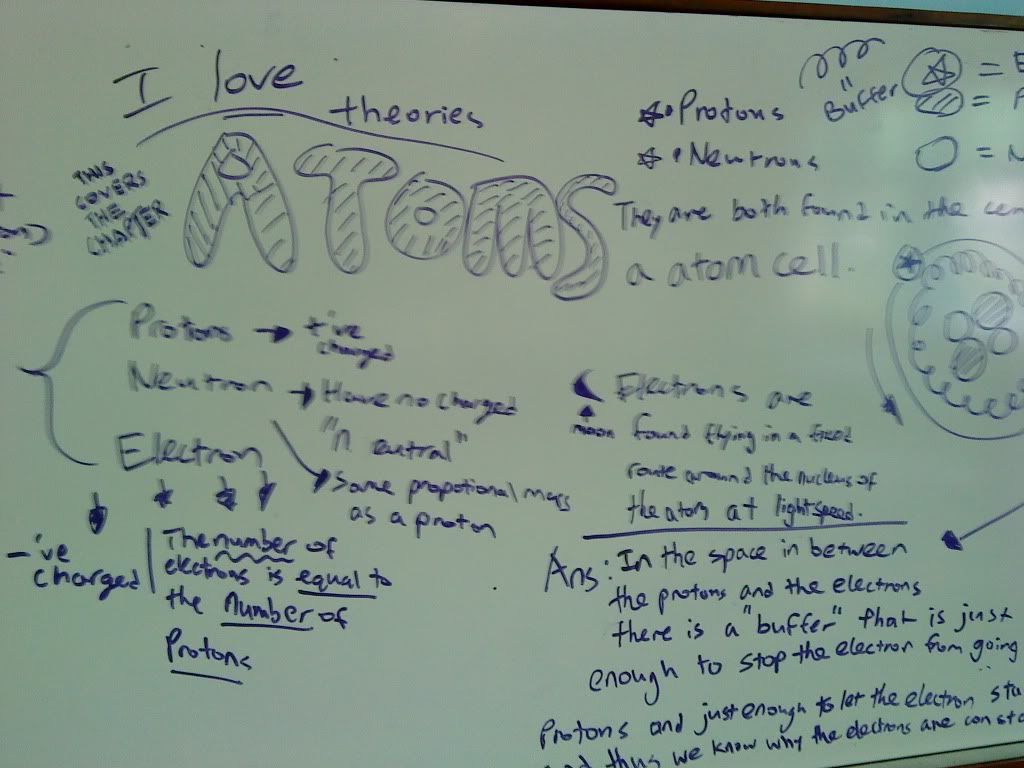 I love
theories
ATOMS
THIS
COVERS
THE
CHAPTER
Protons → +'ve
charged
Neutron → Have no charged
"neutral"
Same propotional mass
as a proton
Electron
-'ve
charged
The number of
electrons is equal to
the number of
Protons
• Protons
• Neutrons
They are both found in the cen
a atom cell.
Buffer
"
= E
= P
= N
Electrons are
moon found flying in a fixed
route around the nucleus of
the atom at light speed.
Ans: In the space in between
the protons and the electrons
there is a "buffer" that is just
enough to stop the electron from going
Protons and just enough to let the electron sta
and thus we know why the electrons are consta